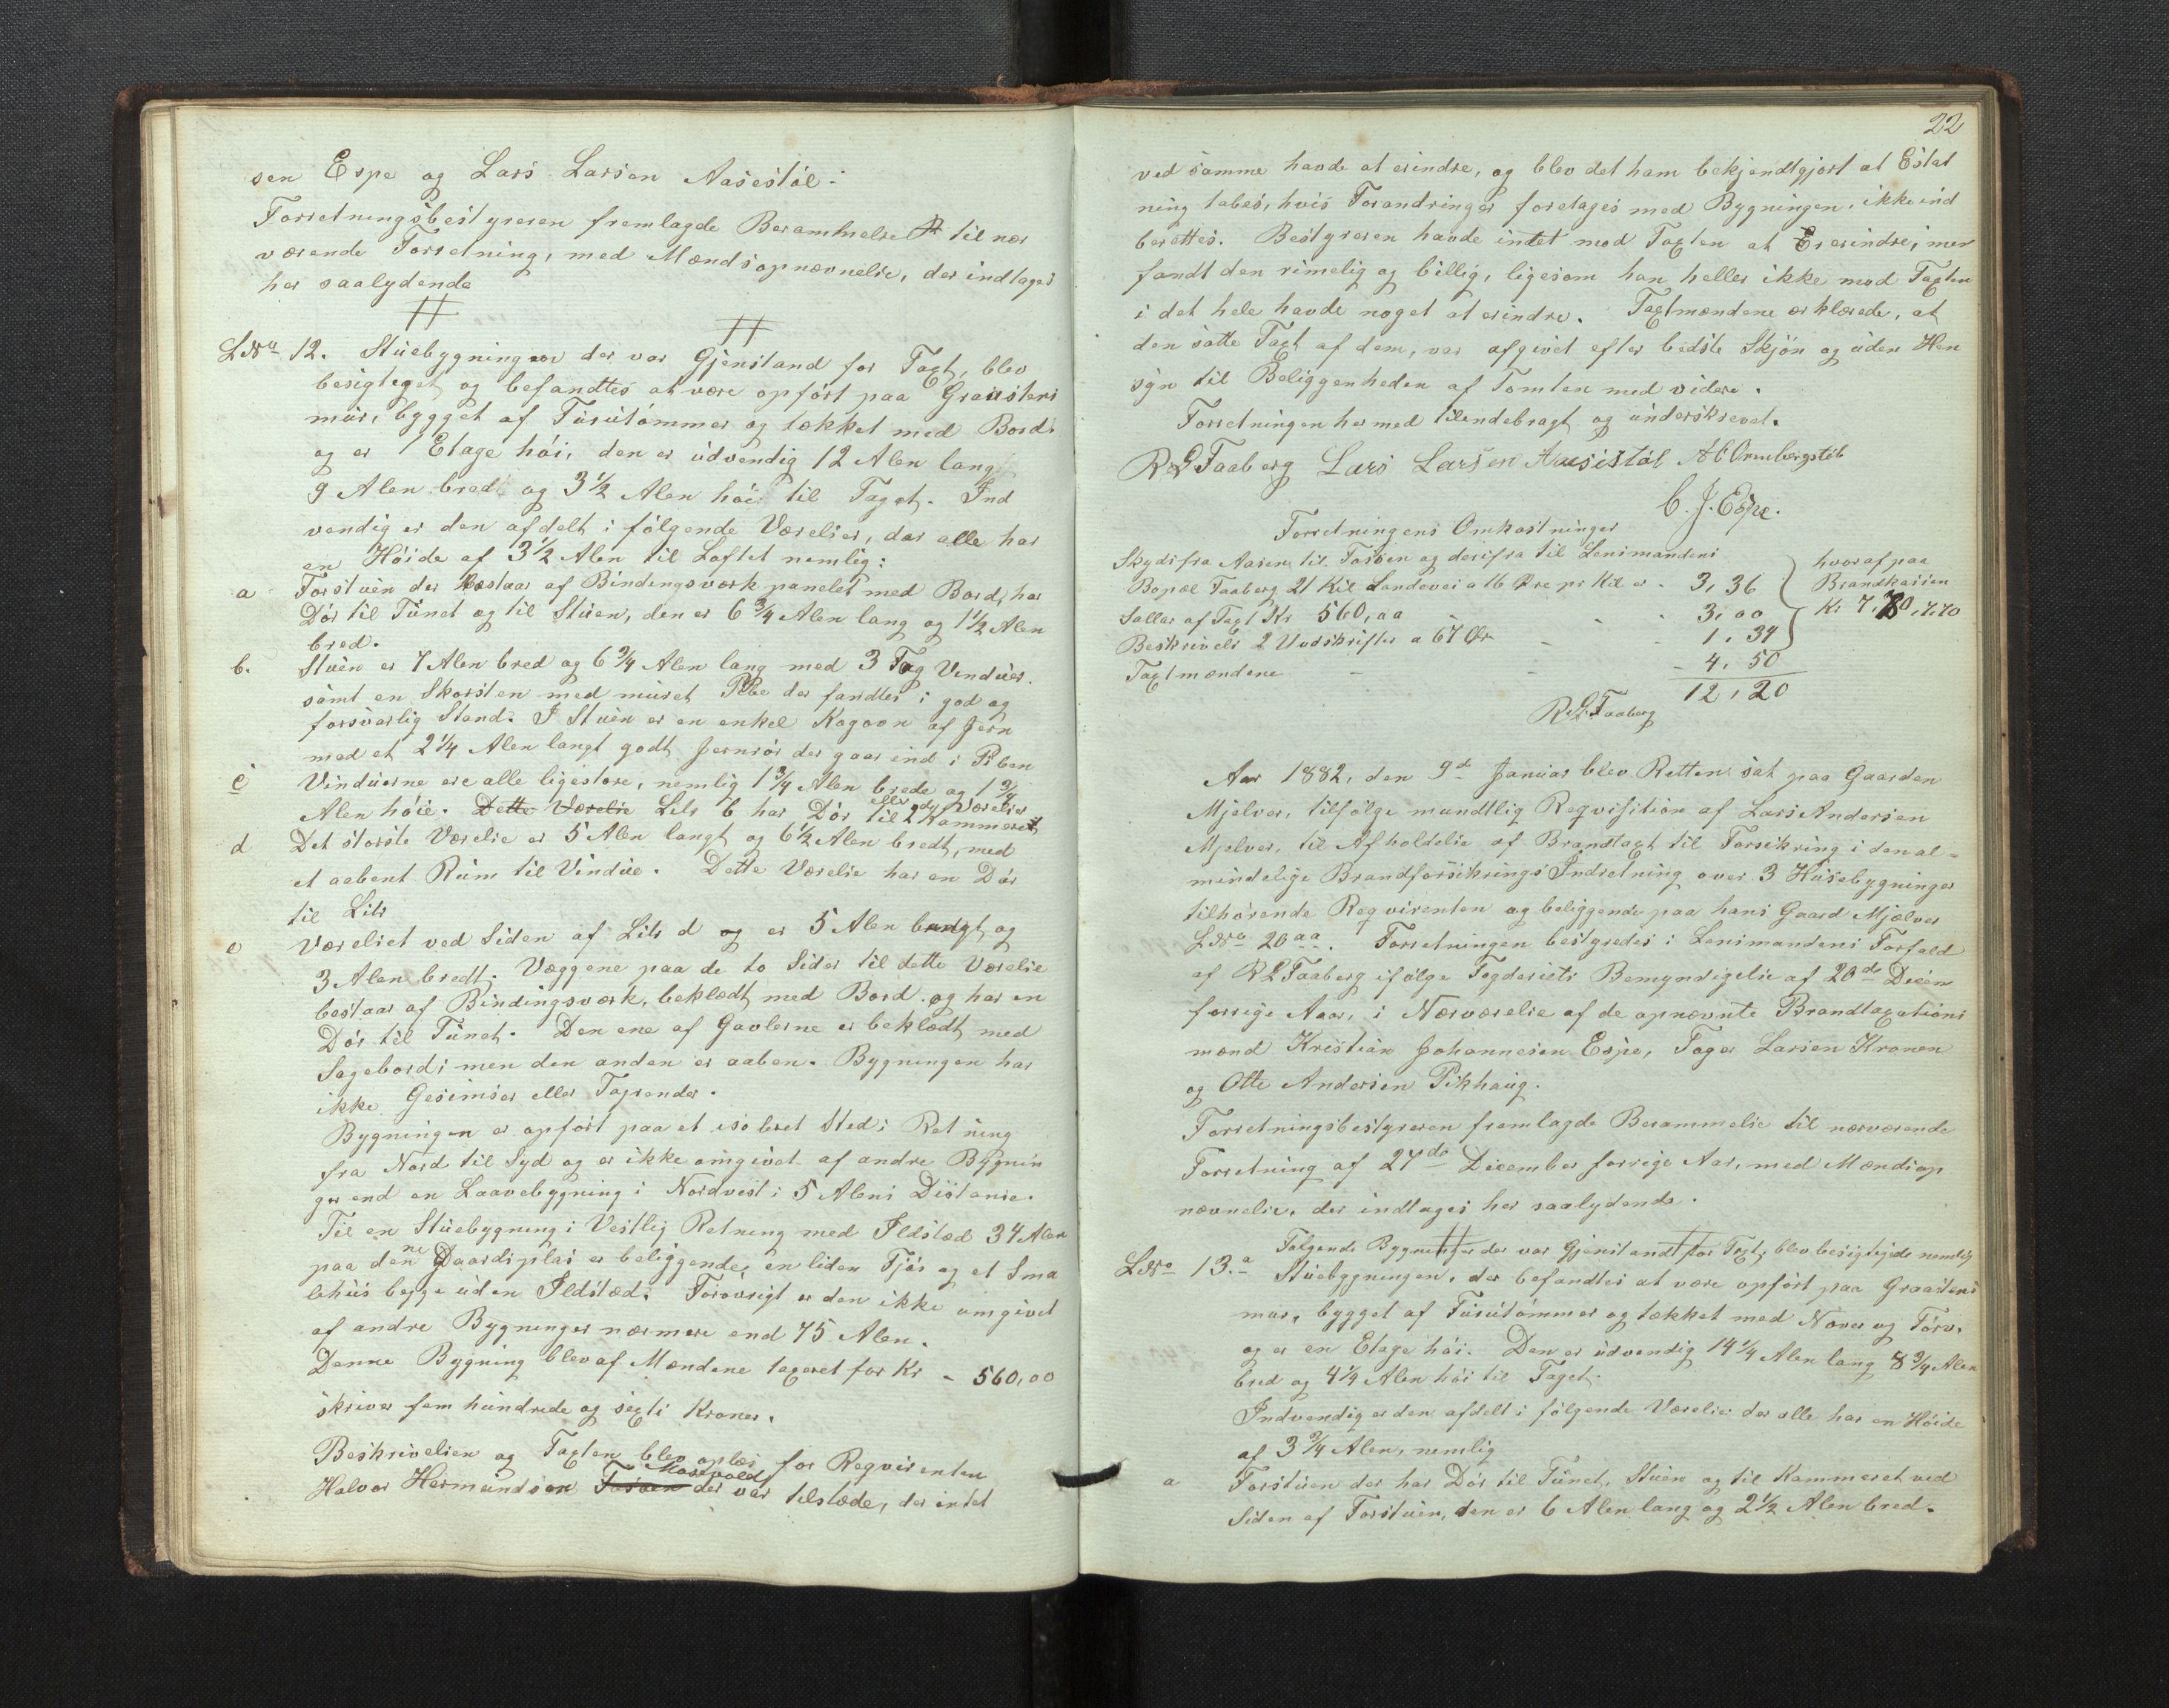 sen Espe og Lars Larsen Aasestöl.
Forretningsbestyreren fremlagde Berammelse # til nær
værende Forretning, med Mændsopnævnelse, der indtages
her saalydende
# #
LNo 12. Stuebygningen der var Gjenstand for Taxt, blev
besigtiget og befandtes at være opført paa Graasteins
mur, bygget af Furutömmer og tækket med Bord.
og er 1 Etage höi, den er udvendig 12 Alen lang
9 Alen bred og 3 1/2 Alen höi til Taget. Ind
vendig er den afdelt i fölgende Værelser, der alle har
en Höide af 3 1/2 Alen til Loftet nemlig:
a Forstuen der bestaar af Bindingsværk panelet med Bord, har
Dör til Tunet og til Stuen, den er 6 3/4 Alen lang og 1 1/2 Alen
bred.
b. Stuen er 7 Alen bred og 6 3/4 Alen lang med 3 Fag Vinduer.
samt en Skorsten med muret Pibe der fandtes i god og
forsvarlig Stand. I Stuen er en enkel Kogovn af Jern
med et 2 1/4 Alen langt godt Jernrör der gaar ind i Piben
c Vinduerne ere alle ligestore, nemlig 1 3/4 Alen brede og 1 3/4
Alen höie. Dette Værelse Litr b har Dör til 2 Kammeret
eller 2de Værelser
d Det störste Værelse er 5 Alen langt og 6 1/2 Alen bredt, med
et aabent Rum til Vindue. Dette Værelse har en Dör
til Litr
e Værelset ved Siden af Litr d og er 5 Alen langt og
3 Alen bredt. Væggene paa de to Sider til dette Værelse
bestaar af Bindingsværk, beklædt med Bord. og har en
Dör til Tunet. Den ene af Gavlerne er beklædt med
Sagebord; men den anden er aaben. Bygningen har
ikke Gesimser eller Tagrender.
Bygningen er opfört paa et isoleret Sted i Retning
fra Nord til Syd og er ikke omgivet af andre Bygnin
ger end en Laavebygning i Nordvest i 5 Alens Distanse.
Til en Stuebygning i Vestlig Retning med Ildsted 34 Alen
paa denne Gaardsplas er beliggende en liden Fjös og et Sma
lehus begge uden Ildsted. Forövrigt er den ikke omgivet
af andre Bygninger nærmere end 75 Alen.
Denne Bygning blev af Mændene taxeret for Kr - 560,00
skriver fem hundrede og sexti Kroner.
Beskrivelsen og Taxten blev oplæs for Reqvirenten
Halvor Hermundsen Fosöen Mostvold der var tilstede, der intet
22
ved samme havde at erindre, og blev det ham bekjendtgjort at Estat
ning tabes, hvis Forandringer foretages med Bygningen, ikke ind
berettes. Bestyreren havde intet mod Taxten at Er erindre, men
fandt den rimelig og billig, ligesom han heller ikke mod Taxten
i det hele havde noget at erindre. Taxtmændene erklærede, at
den satte Taxt af dem, var afgivet efter bedste Skjön og uden Hen
syn til Beliggenheden af Tomten med videre.
Forretningen hermed tilendebragt og underskrevet.
R L Faaberg Lars Larsen Aasestöl
C. J. Espe.
Forretningens Omkostninger
Skyds fra Aasen til Fosöen og derifra til Lensmandens
Bopæl Faaberg 21 Kil Landevei a 16 Øre pr Kil er - 3,36
Sallar af Taxt Kr 560,00 - - 3,00
Beskrivels 2 Uudskrifter a 67 Øre - - 1,34
Taxtmændene - - - 4,50
12,20
hvoraf paa
Brandkassen
Kr 7,70, 7,70
R L Faaberg
Aar 1882, den 9de Januar blev Retten sat paa Gaarden
Mjelver, tilfölge mundtlig Reqvisition af Lars Andersen
Mjelver, til Afholdelse af Brandtaxt til Forsikring i den al-
mindelige Brandforsikrings Indretning over 3 Husebygninger
tilhörende Reqvirenten og beliggende paa hans Gaard Mjælver
LNo 20 aa. Forretningen bestyredes i Lensmandens Forfald
af R L Faaberg ifölge Fogderiets Bemyndigelse af 20de Decem
forrige Aar, i Nærværelse af de opnævnte Brandtaxations
mænd Kristian Johannesen Espe, Tager Larsen Kronen
og Otte Andersen Pikhaug.
Forretningsbestyreren fremlagde Berammelse til nærværende
Forretning af 27de December forrige Aar, med Mændsop
nævnelse, der indtages her saalydende.
# #
Følgende Bygninger der var Gjenstand for Taxt, blev besigtigede nemlig
LNo 13.a Stuebygningen, der befandtes at være opfört paa Graasteins
mur, bygget af Furutömmer og tækket med Næver og Törv,
og er en Etage höi. Den er udvendig 14 1/4 Alen lang 8 3/4 Alen
bred og 4 1/4 Alen höi til Taget.
Indvendig er den afdelt i fölgende Værelser der alle har en Höide
af 3 3/4 Alen, nemlig
a Forstuen der har Dör til Tunet, Stuen og til Kammeret ved
Siden af Forstuen, den er 6 Alen lang og 2 1/2 Alen bred.